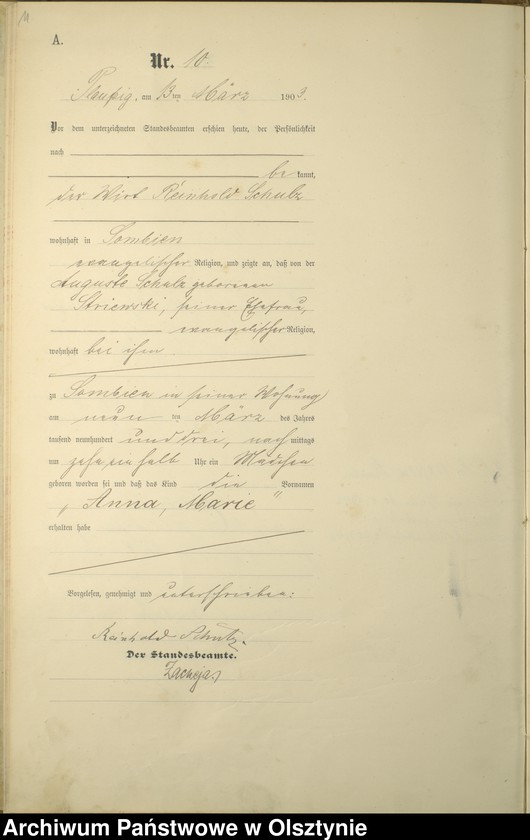 11
A.
Nr. 10.
Plauzig, am 13ten März 1903.
Vor dem unterzeichneten Standesbeamten erschien heute, der Persönlichkeit
nach
be kannt,
der Wirt Reinhold Schulz
wohnhaft in Sombien
evangelischer Religion, und zeigte an, daß von der
Auguste Schulz geborenen
Striewski, seiner Ehefrau,
evangelischer Religion,
wohnhaft bei ihm
zu Sombien in seiner Wohnung
am neun ten März des Jahres
tausend neunhundert und drei, nach mittags
um zehn ein halb Uhr ein Mädchen
geboren worden sei und daß das Kind die Vornamen
„Anna, Marie“
erhalten habe
Vorgelesen, genehmigt und unterschrieben:
Reinhold Schulz.
Der Standesbeamte.
Archiwum Państwowe w Olsztynie